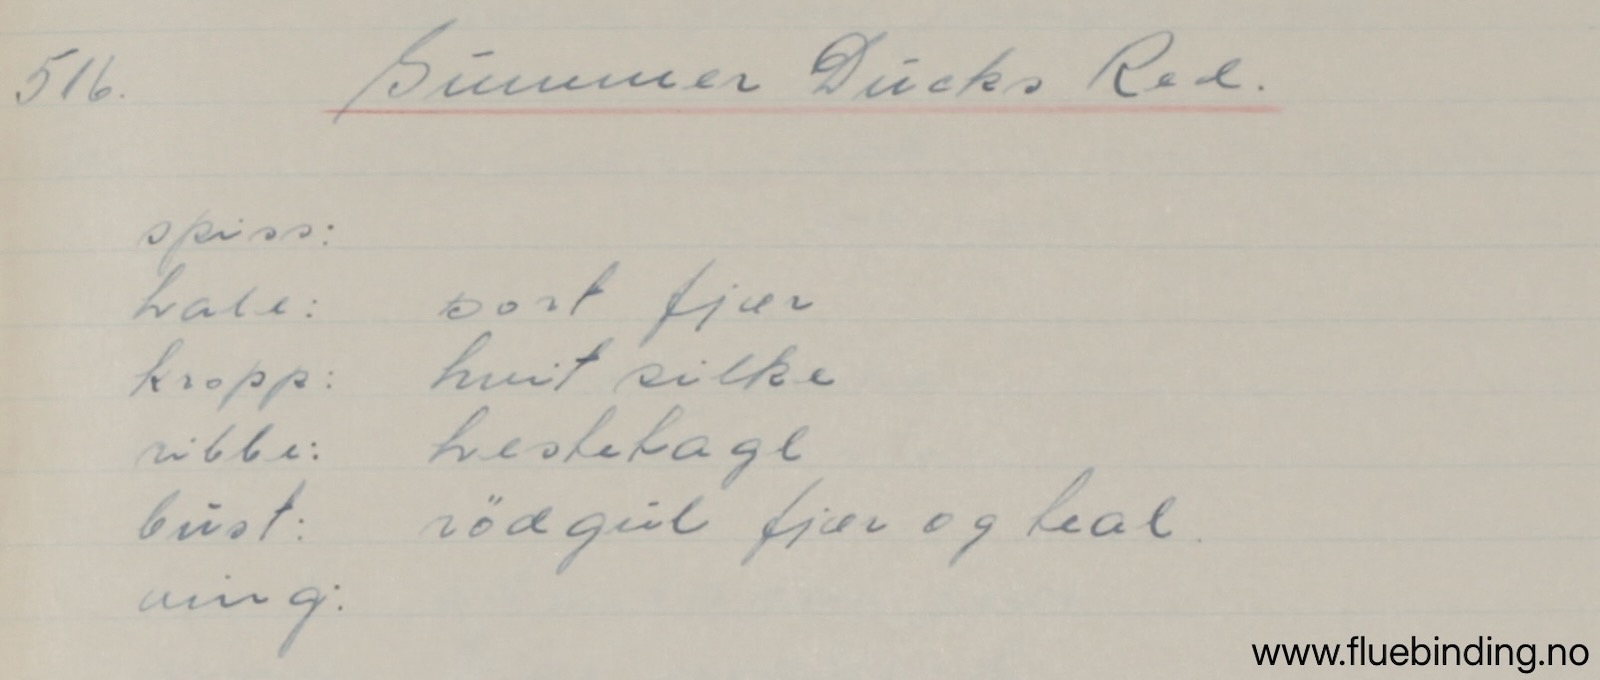 516. Summer Ducks Red.
spiss:
hale: sort fjær
kropp: hvit silke
ribbe: hestetagl
bust: rödgul fjær og teal.
ving:
www.fluebinding.no